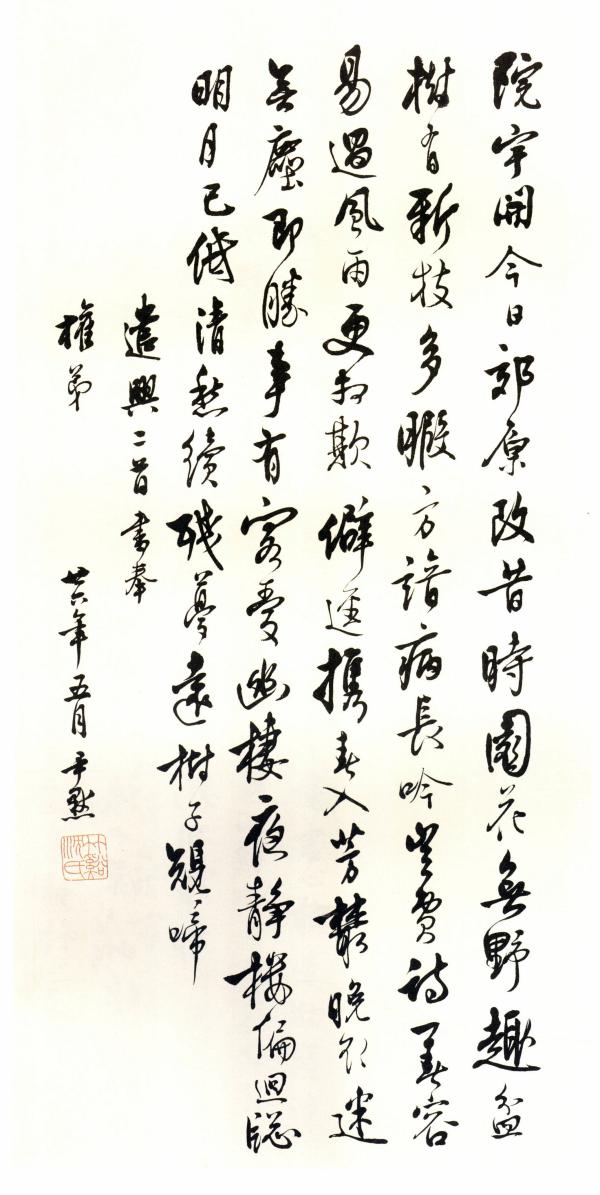 院宇開今日郊原改昔時園花無野趣盆
樹有新枝多暇方諳病長吟豈費詩一春容
易過風雨更相欺僻逕攜春入芳叢晚欲迷
無塵即勝事有客愛幽棲夜靜樓偏迥牕
明月已低清愁續殘夢遠樹子規啼
遣興二首書奉
權弟 廿六年五月尹默
竹谿沈氏